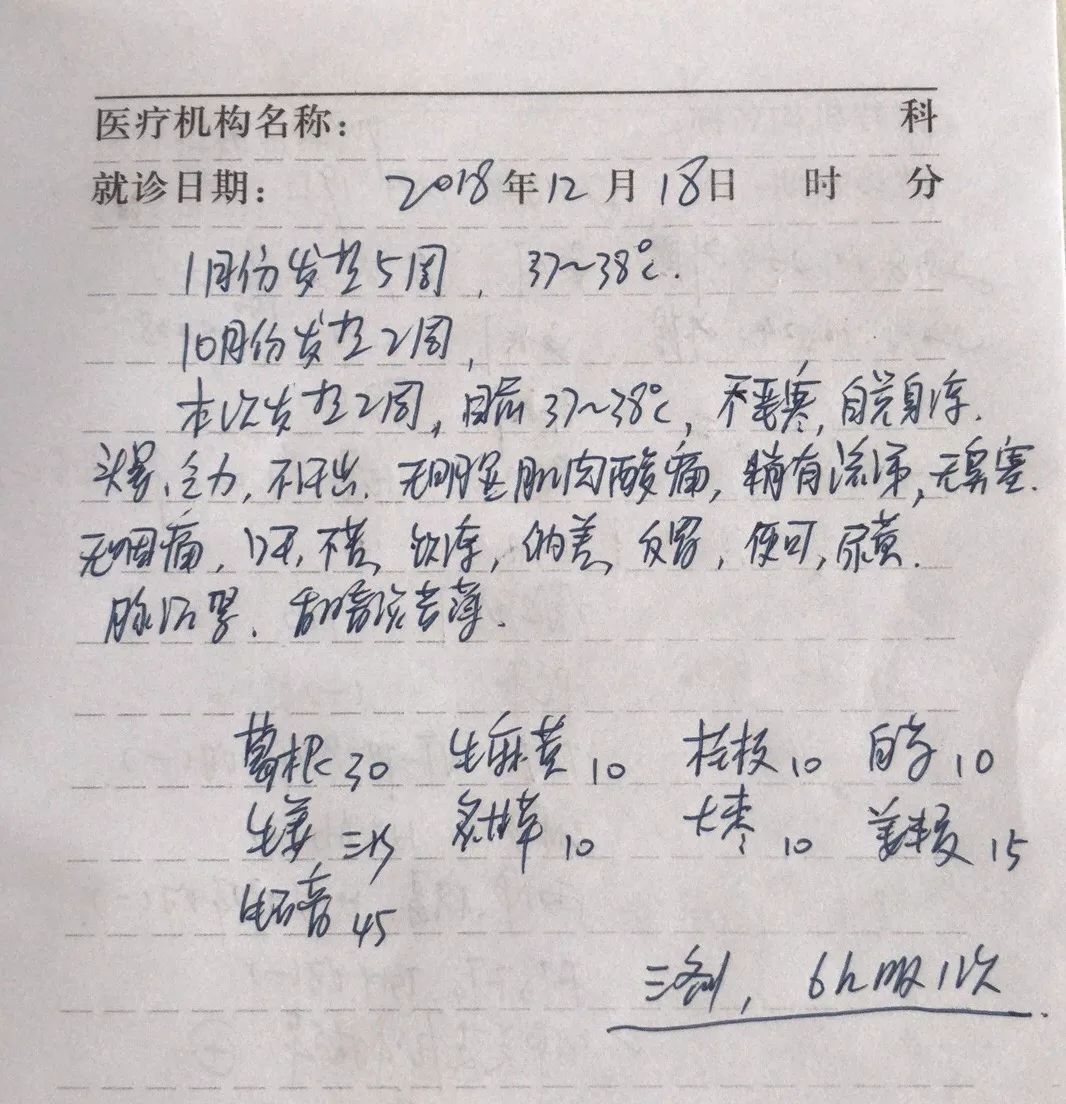 医疗机构名称： 科
就诊日期： 2018年12月18日 时 分
1月份发热5周，37~38℃.
10月份发热2周，
本次发热2周，目前37~38℃，不恶寒，自觉身冷.
头晕、乏力，不汗出. 无明显肌肉酸痛，稍有流涕，无鼻塞.
无咽痛，口干，不苦，饮冷，纳差，反胃，便可，尿黄.
脉沉紧、舌暗淡苔薄.
葛根30 生麻黄10 桂枝10 白芍10
生姜三片 炙甘草10 大枣10 姜半夏15
生石膏45
三剂，6h服1次.